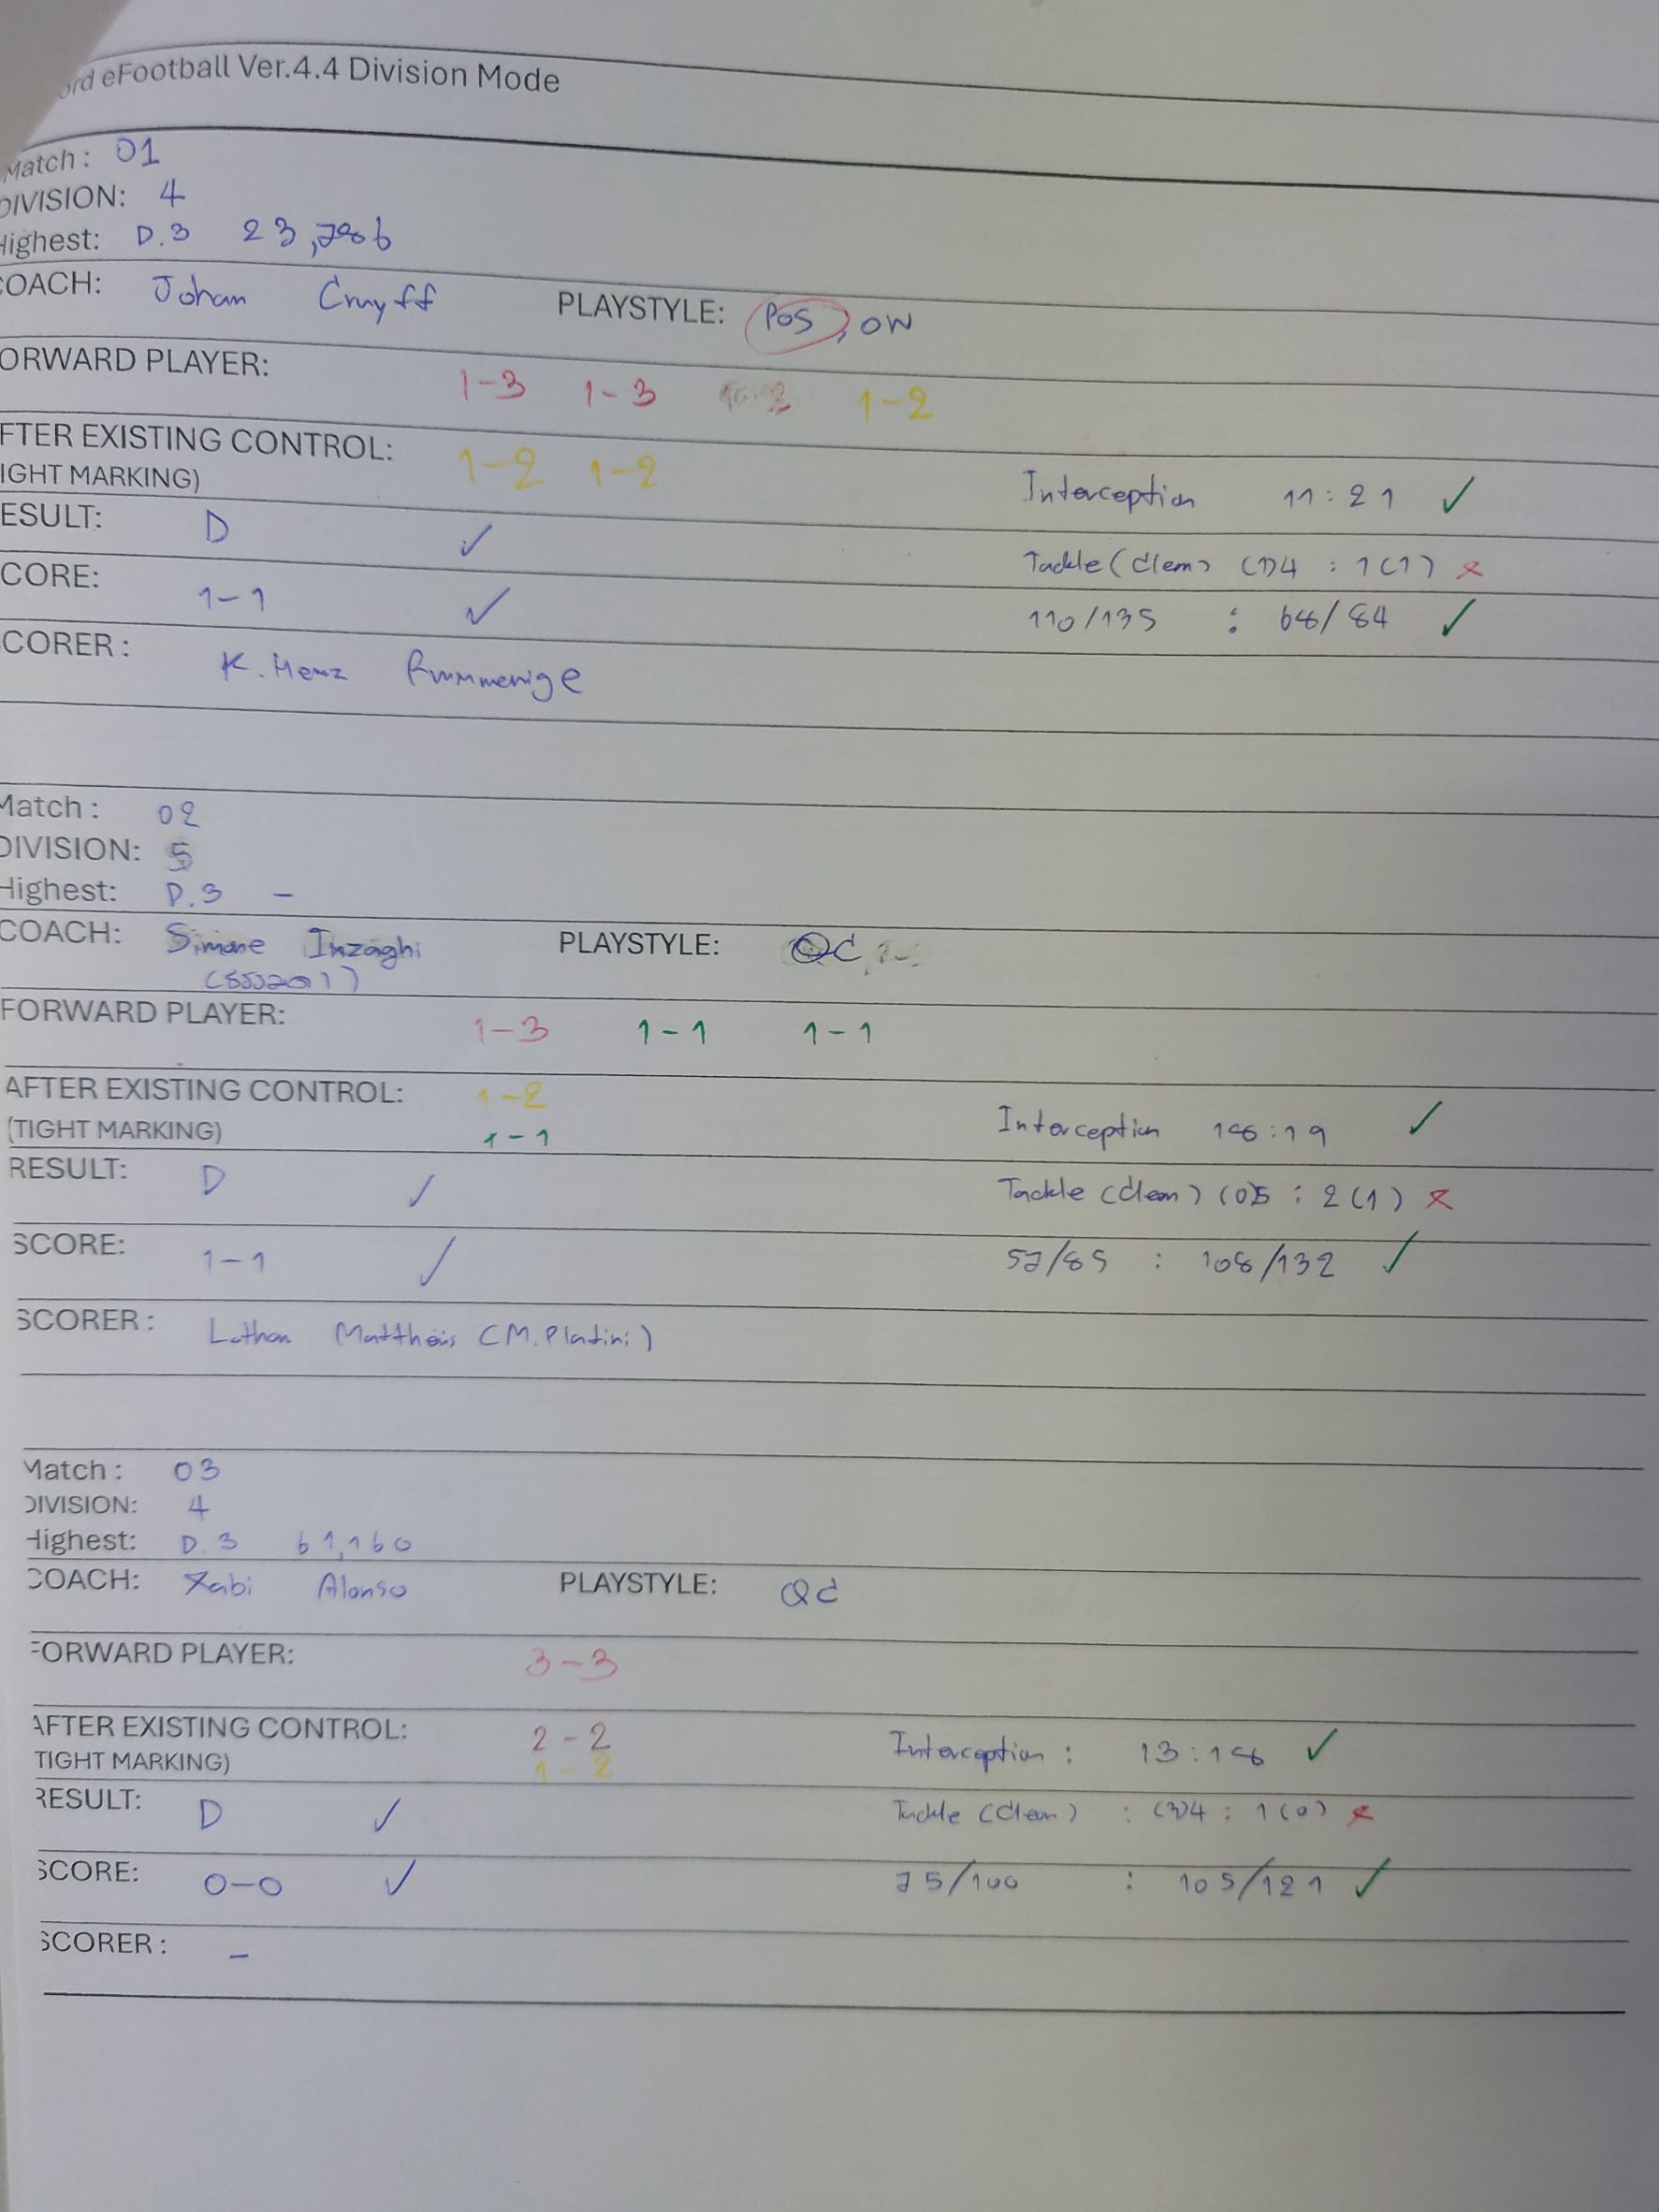 ord eFootball Ver.4.4 Division Mode
Match : 01
DIVISION: 4
Highest: D.3 23,786
COACH: Johan Cruyff PLAYSTYLE: POS, OW
ORWARD PLAYER: 1-3 1-3 1-2
FTER EXISTING CONTROL: 1-2 1-2
IGHT MARKING) Interception 11:21 ✓
ESULT: D ✓ Tackle (Clean) (1)4 : 1(1) x
CORE: 1-1 ✓ 110/135 : 68/84 ✓
CORER : K.Heinz Rummenige
Match : 02
DIVISION: 5
Highest: D.3 -
COACH: Simone Inzaghi PLAYSTYLE: QC
FORWARD PLAYER: 1-3 1-1 1-1
AFTER EXISTING CONTROL: 1-2
(TIGHT MARKING) 1-1 Interception 18:19 ✓
RESULT: D ✓ Tackle (Clean) (0)5 : 2(1) x
SCORE: 1-1 ✓ 57/85 : 108/132 ✓
SCORER : Lothar Matthäus (M.Platini)
Match : 03
DIVISION: 4
Highest: D.3 61,160
COACH: Xabi Alonso PLAYSTYLE: QC
FORWARD PLAYER: 3-3
AFTER EXISTING CONTROL: 2-2
TIGHT MARKING) 1-2 Interception : 13:18 ✓
RESULT: D ✓ Tackle (Clean) : (3)4 : 1(0) x
SCORE: 0-0 ✓ 75/100 : 105/121 ✓
SCORER : -